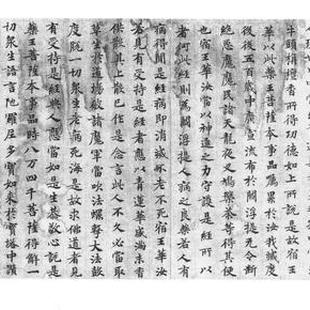 牛頭栴檀香所得功德如上所說是故宿王
華以此藥王菩薩本事品囑累於汝我滅度
後後五百歲中廣宣流布於閻浮提无令斷
絕惡魔魔民諸天龍夜叉鳩槃荼等得其便
也宿王華汝當以神通之力守護是經所以
者何此經則為閻浮提人病之良藥若人有
病得聞是經病即消滅不老不死宿王華汝
若見有受持是經者應以青蓮華盛滿末香
供散其上散已作是念言此人不久必當取
草坐於道場破諸魔軍當吹法螺擊大法鼓
度脫一切衆生老病死海是故求佛道者見
有受持是經典人應當如是生恭敬心說是
藥王菩薩本事品時八万四千菩薩得解一
切衆生語言陀羅尼多寶如來於寶塔中讚